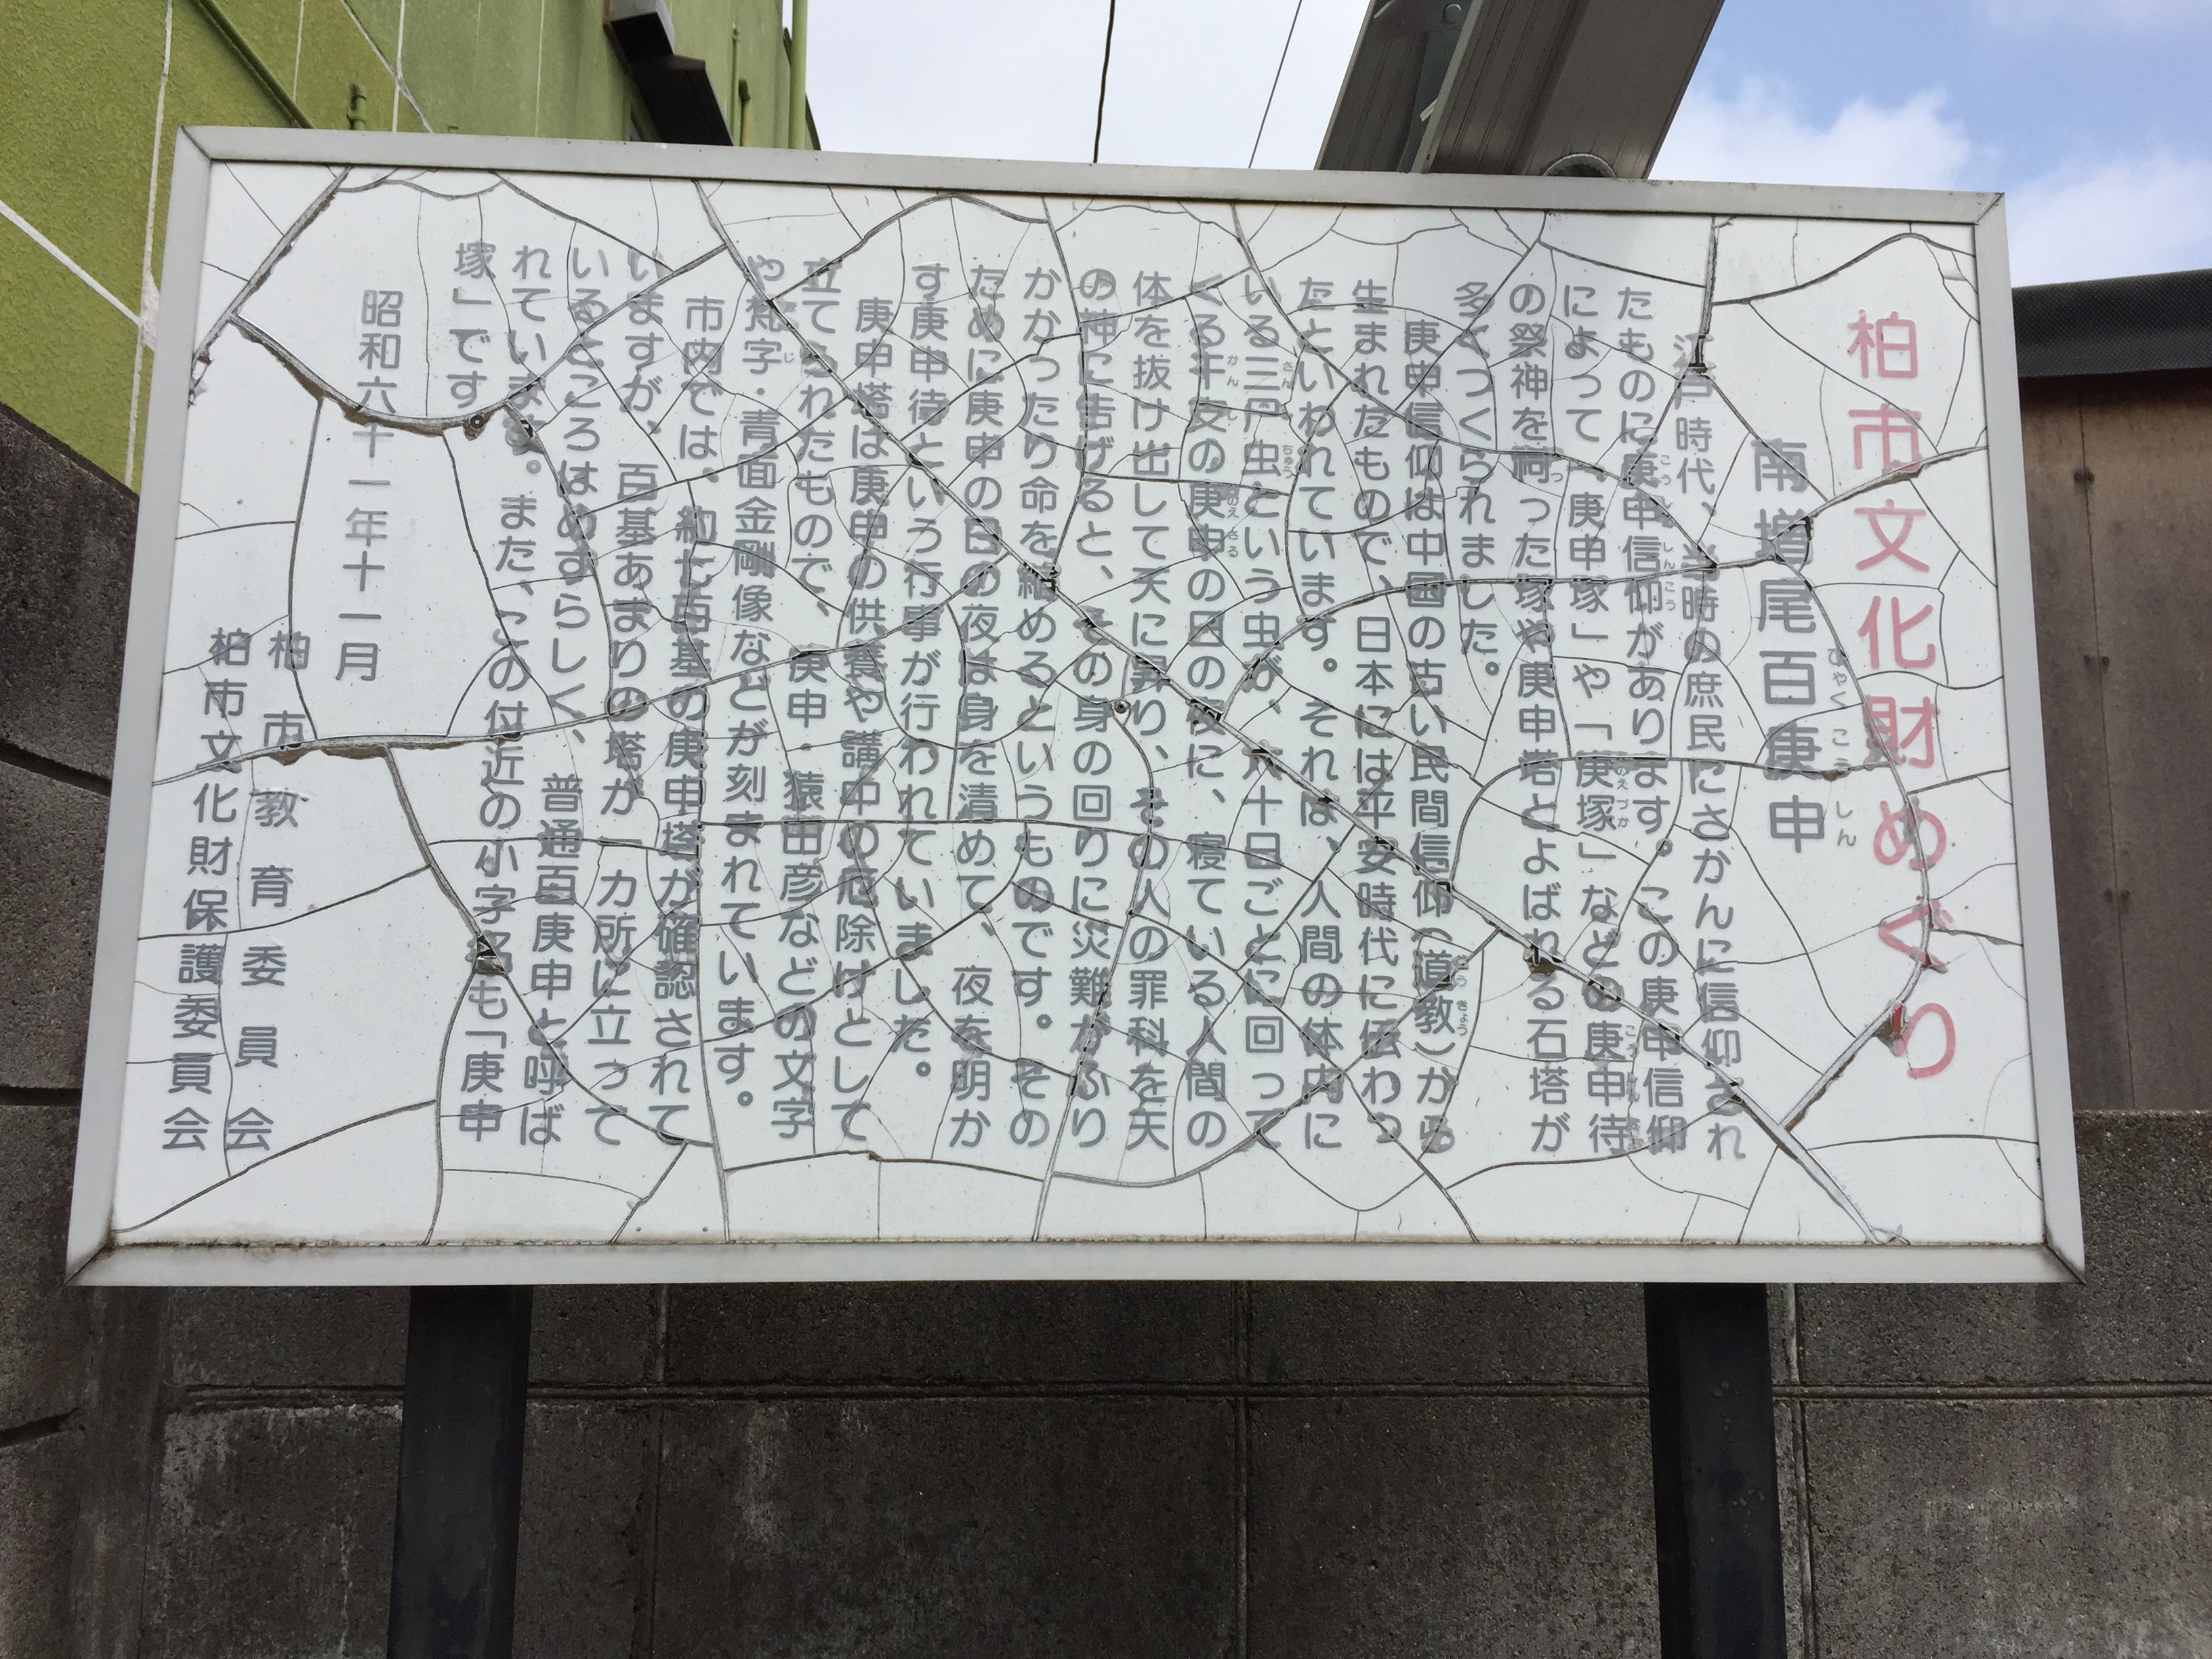 柏市文化財めぐり
南増尾百庚申
ひゃくこうしん
江戸時代、当時の庶民にさかんに信仰され
たものに庚申信仰があります。この庚申信仰
によって、庚申塚」や「庚塚」などの庚申待
の祭神を祠った塚や庚申塔とよばれる石塔が
多くつくられました。
庚申信仰は中国の古い民間信仰(道教)から
生まれたもので、日本には平安時代に伝わっ
たといわれています。それは、人間の体内に
いる三尸虫という虫が、六十日ごとに回って
くる干支の庚申の日の夜に、寝ている人間の
体を抜け出して天に昇り、その人の罪科を天
の神に告げると、その身の回りに災難がふり
かかったり命を縮めるというものです。その
ために庚申の日の夜は身を清めて、夜を明か
す庚申待という行事が行われていました。
庚申塔は庚申の供養や講中の厄除けとして
立てられたもので、庚申・猿田彦などの文字
や梵字・青面金剛像などが刻まれています。
市内では、約七百基の庚申塔が確認されて
いますが、百基あまりの塔が一カ所に立って
いるところはめずらしく、普通百庚申と呼ば
れています。また、この付近の小字名も「庚申
塚」です
昭和六十一年十一月
柏市教育委員会
柏市文化財保護委員会